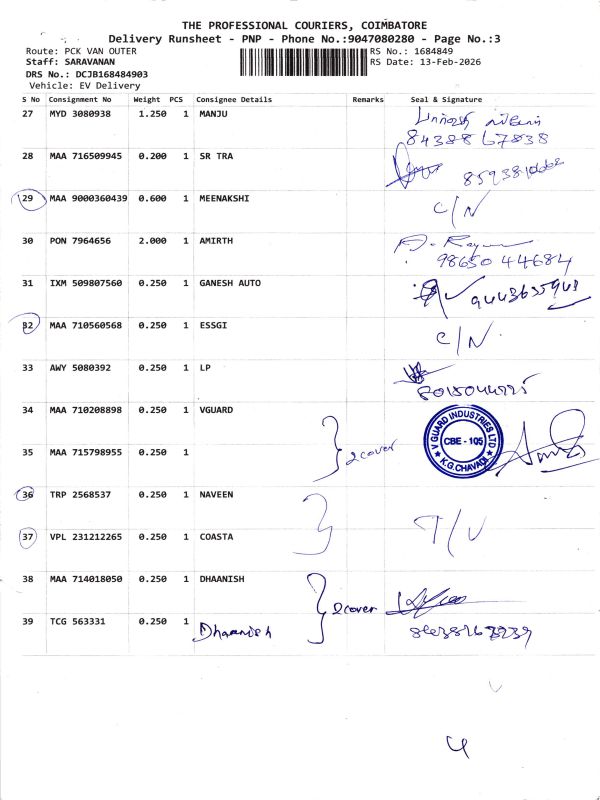 THE PROFESSIONAL COURIERS, COIMBATORE
Delivery Runsheet - PNP - Phone No.:9047080280 - Page No.:3
Route: PCK VAN OUTER RS No.: 1684849
Staff: SARAVANAN RS Date: 13-Feb-2026
DRS No.: DCJB168484903
Vehicle: EV Delivery
S No Consignment No Weight PCS Consignee Details Remarks Seal & Signature
27 MYD 3080938 1.250 1 MANJU
84388 67838
28 MAA 716509945 0.200 1 SR TRA
29 MAA 9000360439 0.600 1 MEENAKSHI C/N
30 PON 7964656 2.000 1 AMIRTH
98650 44684
31 IXM 509807560 0.250 1 GANESH AUTO
32 MAA 710560568 0.250 1 ESSGI C/N
33 AWY 5080392 0.250 1 LP
34 MAA 710208898 0.250 1 VGUARD V GUARD INDUSTRIES LTD
2cover CBE - 105
35 MAA 715798955 0.250 1 K.G.CHAVADI
36 TRP 2568537 0.250 1 NAVEEN
T/V
37 VPL 231212265 0.250 1 COASTA
38 MAA 714018050 0.250 1 DHAANISH
2cover
39 TCG 563331 0.250 1 Dhaanish
4